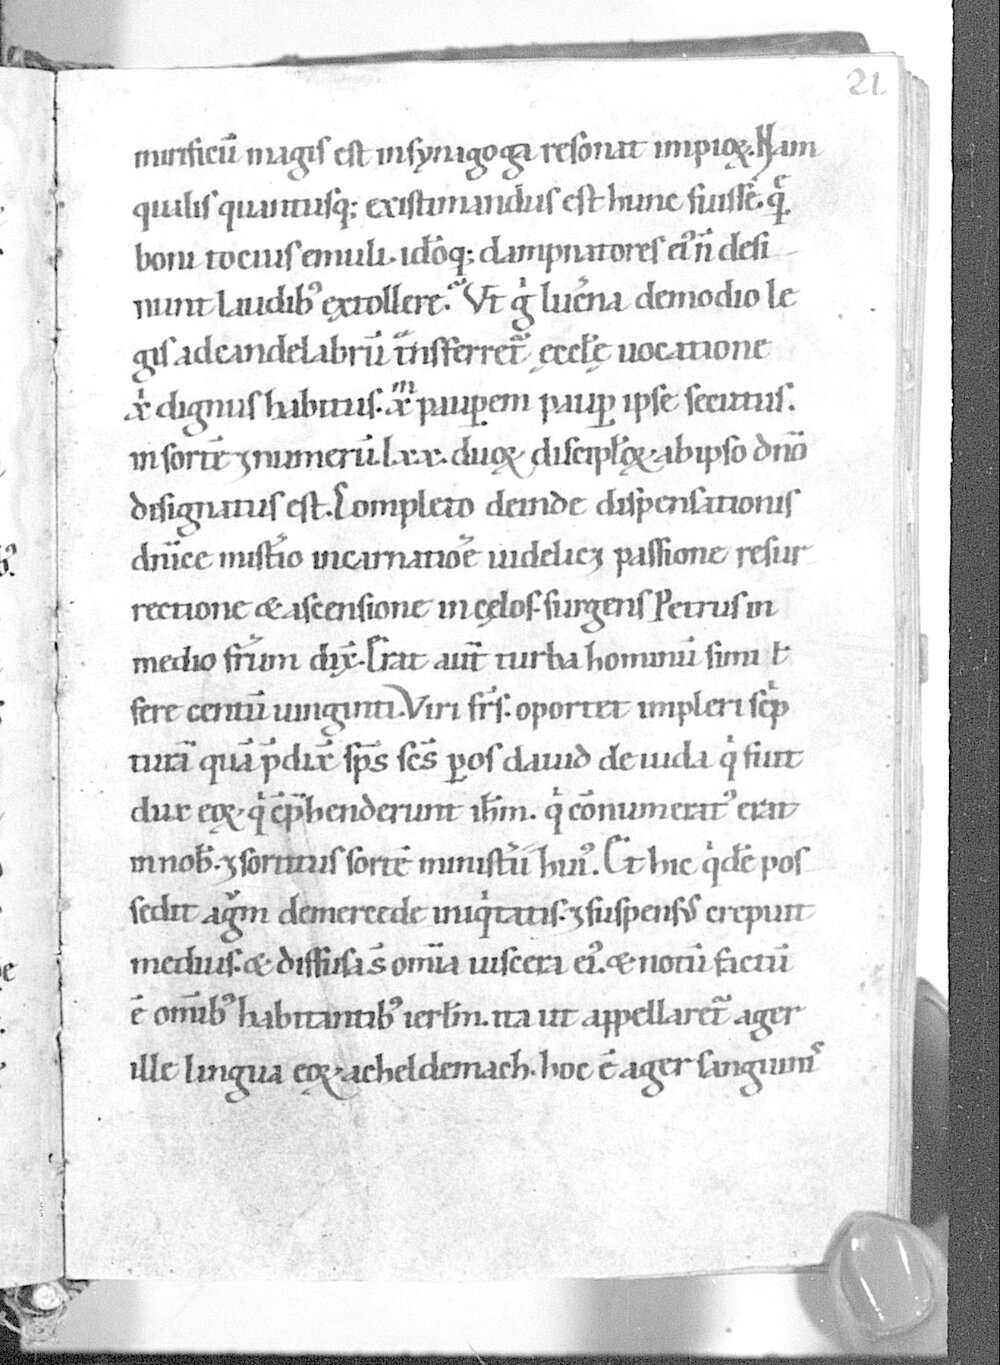 21
mirificū magis est insynagoga resonat impioꝝ. Nam
qualis quantusq; existimandus est hunc fuisse.
boni tocius emuli. idōq; dampnatores eiꝰ n̄ desi
nunt laudibꝰ extollere. Vt gͥ lucerna demodio le
gis adcandelabrū transferret᷑ ęcclę uocatione
xͥ dignus habitus. xͫ pauꝑem pauꝑ ipse secutus.
in sortē ⁊numerū lxx. duoꝝ discipl̄oꝝ abipso dn̄o
designatus est. Completo deinde dispensationis
dn̄ice mist̄io incarnatiōe uidelicꝫ passione resur
rectione & ascensione incęlos. surgens Petrus in
medio fr̄um dix̄. Erat aut̄ turba hominū simul
fere centū uiginti. Viri fr̄s. oportet impleri scͥp
turā quā p̄dix̄ sp̄s sc̄s ꝑ os dauid de iuda qͥ fuit
dux eoꝝ qͥ cp̄henderunt ih̄m. qͥ cōnumeratꝰ erat
in nob̄. ⁊sortitus sortē minist̄ii huiꝰ. Et hic qͥdē pos
sedit agͬm demercede iniqͥtatis. ⁊suspensꝰ crepuit
medius. & diffusa s̄ om̄ia uiscera eiꝰ. & notū factū
ē om̄ibꝰ habitantibꝰ ierl̄m. ita ut appellaret᷑ ager
ille lingua eoꝝ acheldemach. hoc ē ager sanguinis